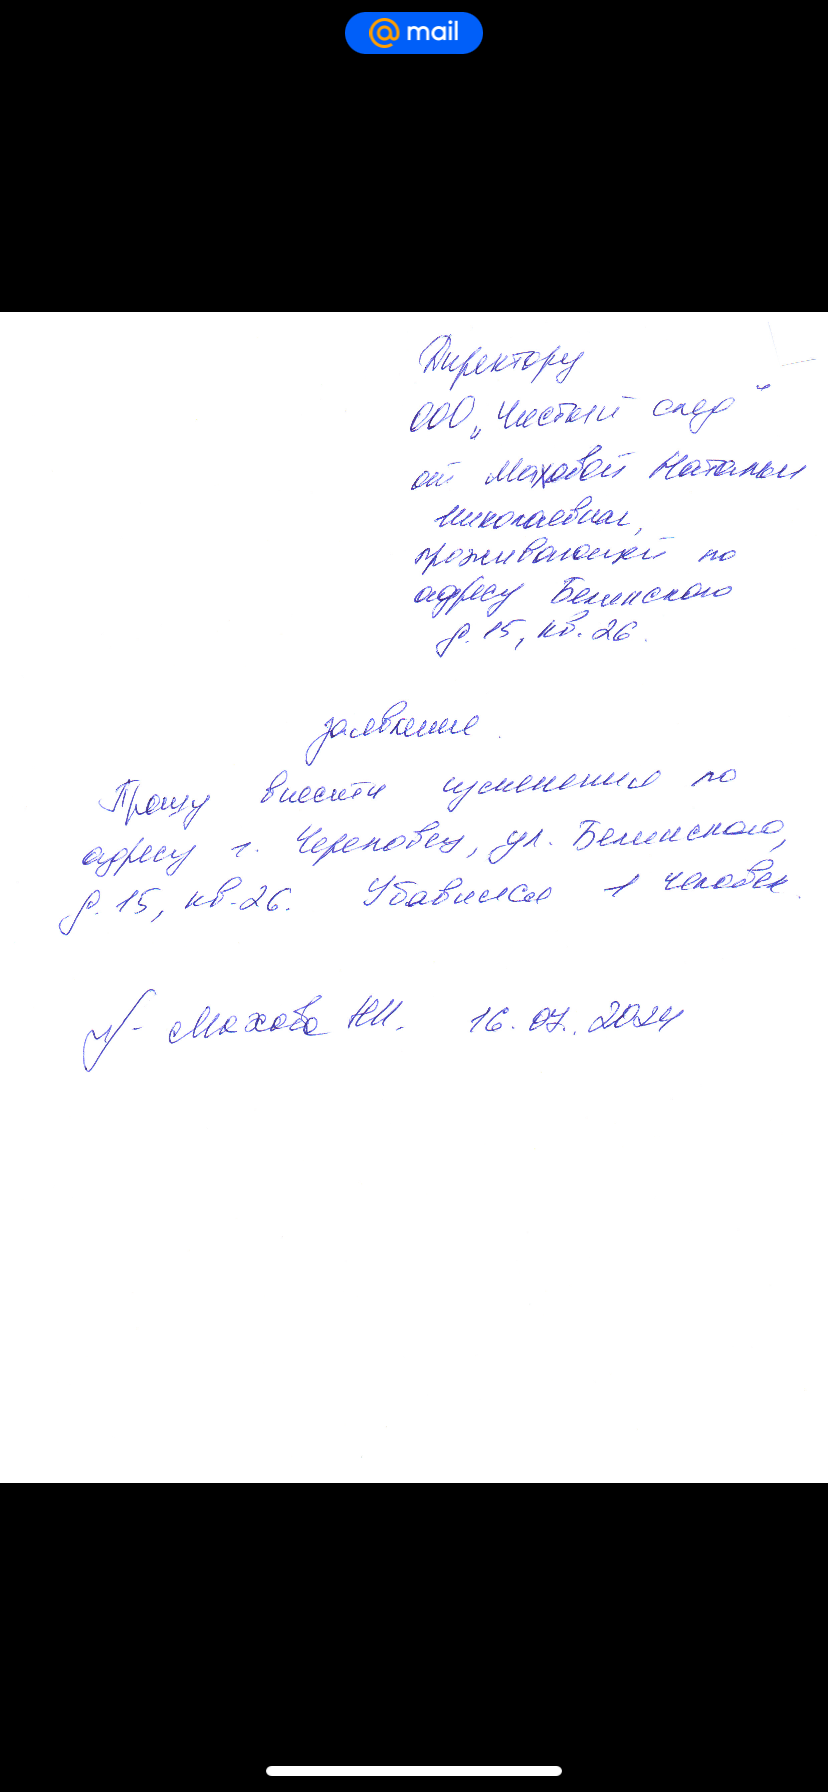 mail
Директору
ООО "Чистый след"
от Маховой Натальи
Николаевны,
проживающей по
адресу Белинского
д. 15, кв. 26.
заявление.
Прошу внести изменения по
адресу г. Череповец, ул. Белинского,
д. 15, кв. 26. Убавился 1 человек.
Махова НН. 16.07.2024